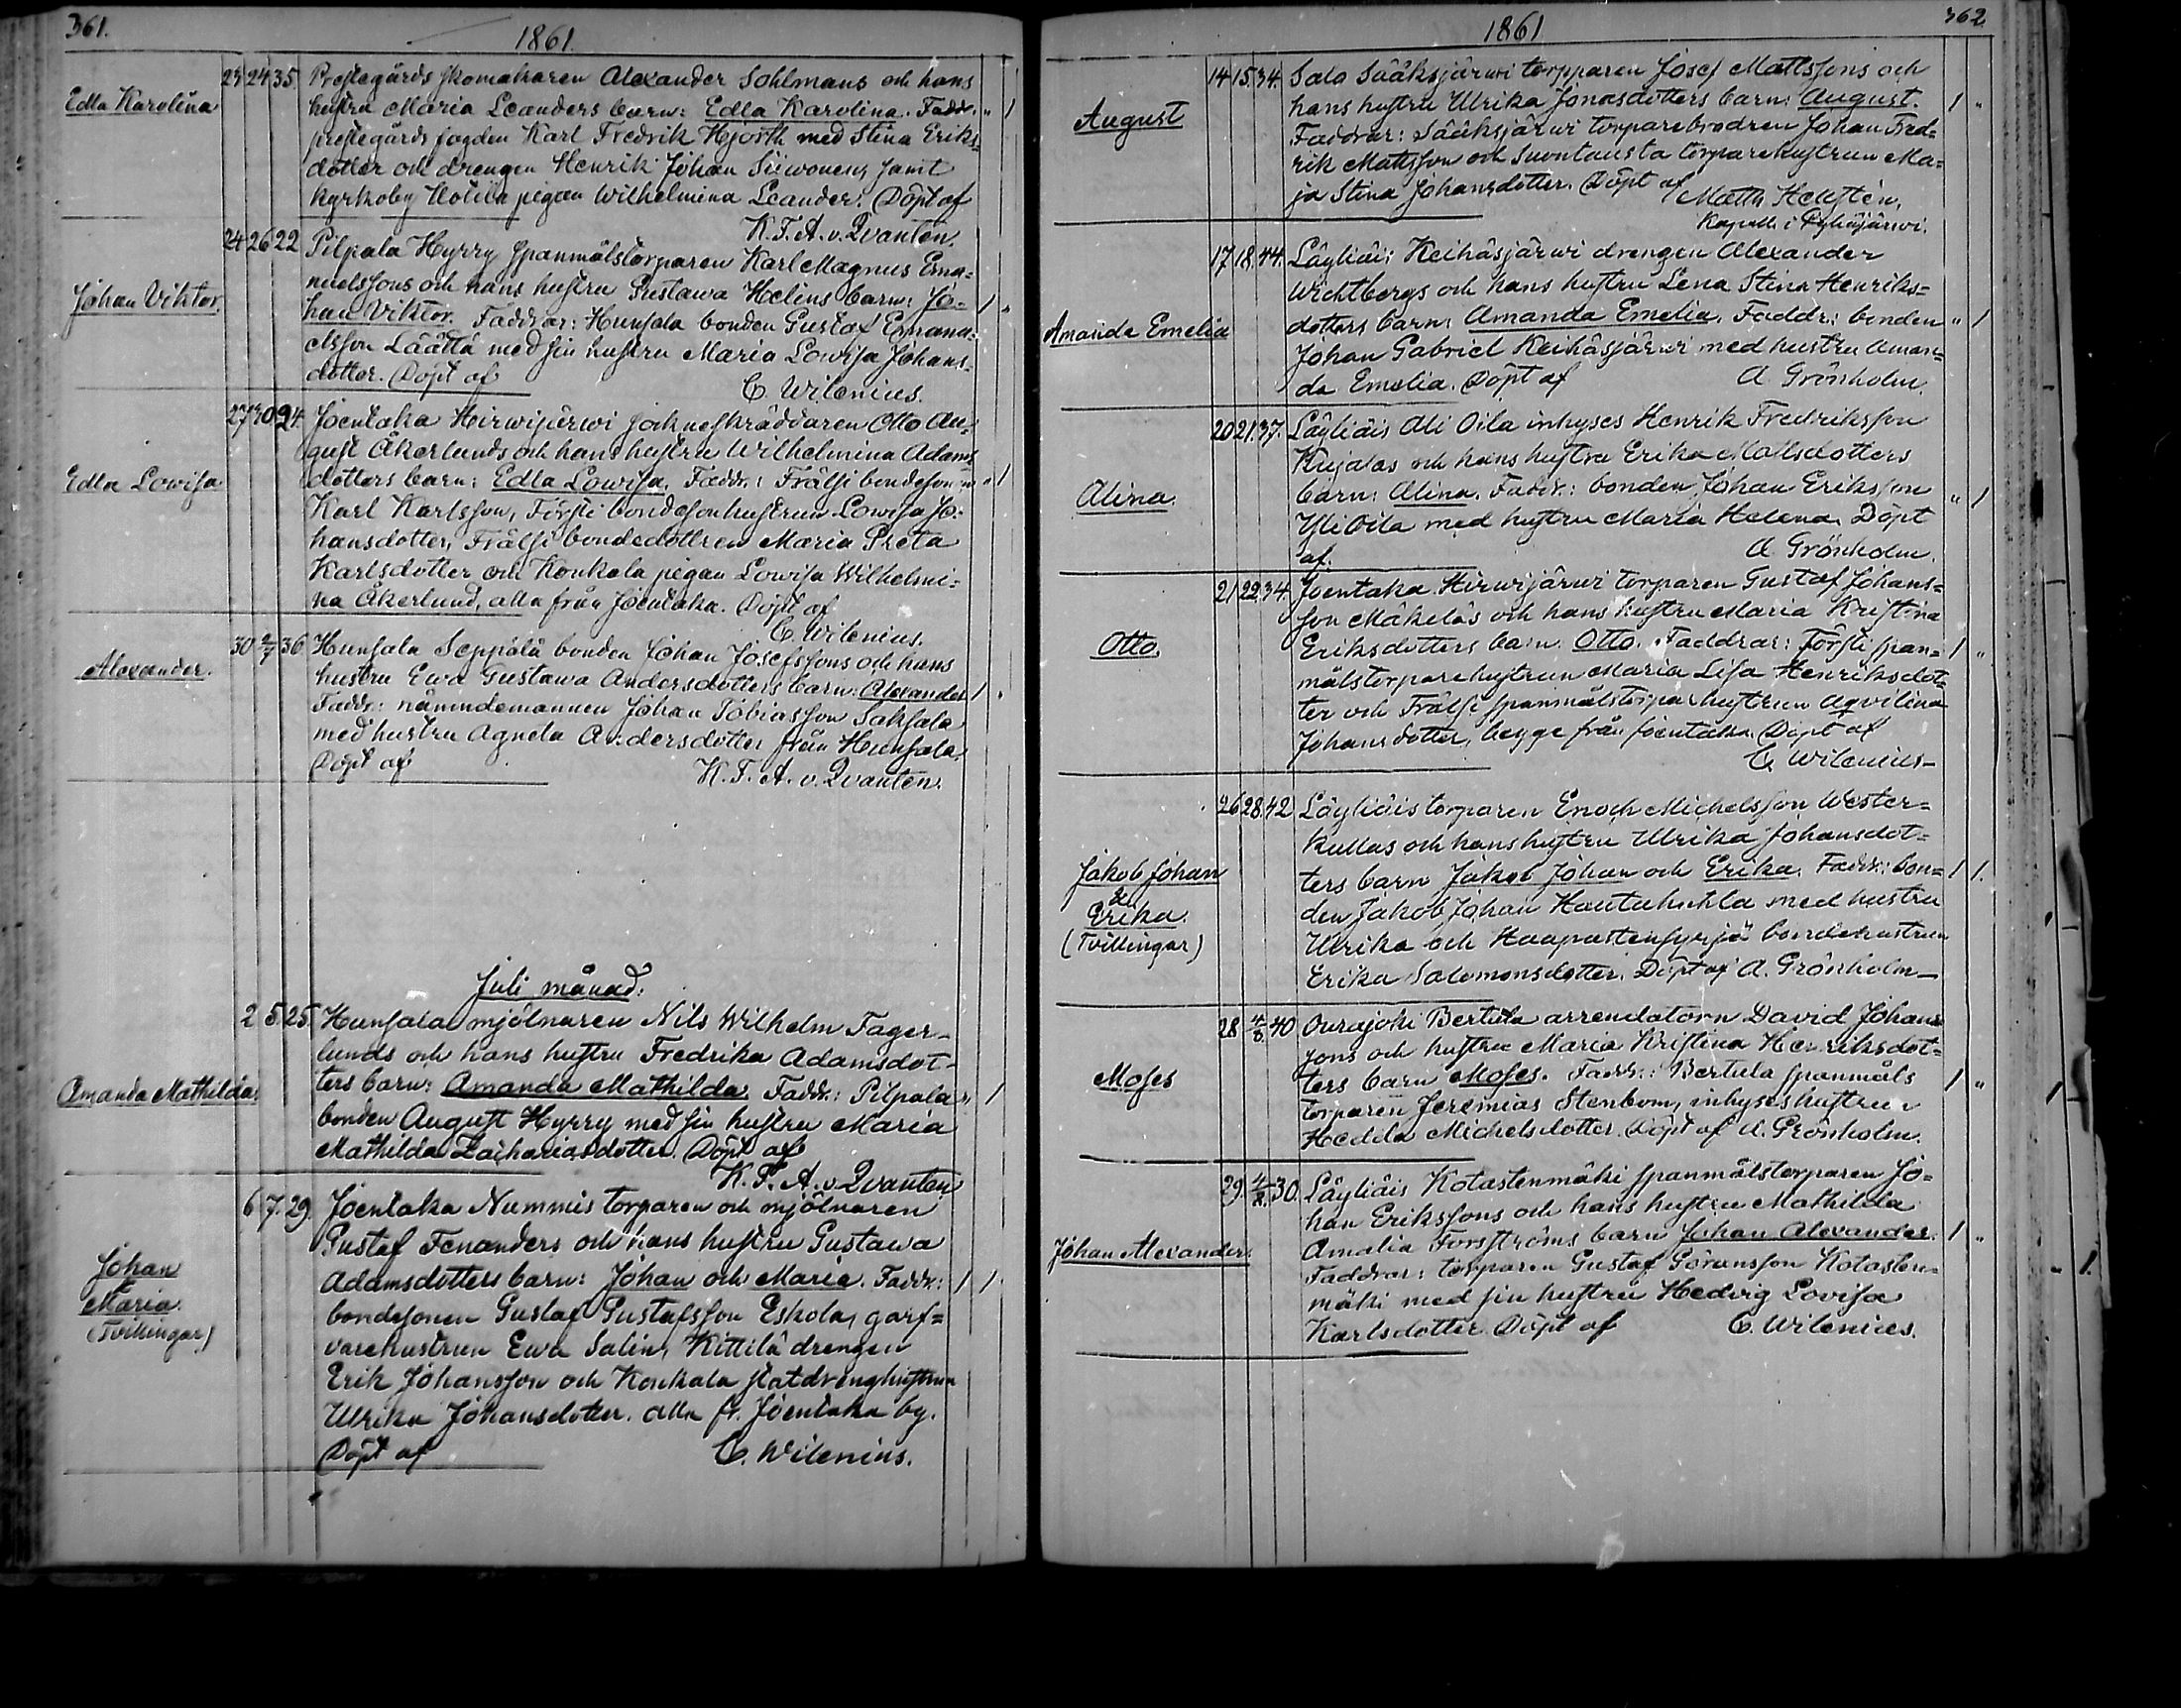 361.
1861.
Edla Karolina
23 24 35. Prestegårds skomakaren Alexander Sohlmans och hans
hustru Maria Leanders barn: Edla Karolina. Faddr. " 1
prestegårds fogden Karl Fredrik Hjorth med Stina Eriks=
dotter och drengen Henrik Johan Siivonens samt
kyrkoby Hotila pigan Wilhelmina Leander. Döpt af
K. F. A. v. Qvantén.
Johan Viktor.
24 26 22. Pilpala Hyrry spanmålstorparen Karl Magnus Ema=
nuelssons och hans hustru Gustawa Helins barn: Jo=
han Viktor. Faddrar: Hunsala bonden Gustaf Emanu= 1 "
elsson Läättä med sin hustru Maria Lowisa Johans=
dotter. Döpt af
C. Wilenius.
Edla Lowisa
27 30 24. Joentaka Hirwijärwi socknesskräddaren Otto Au=
gust Åkerlunds och hans hustru Wilhelmina Adams
dotters barn: Edla Lowisa. Faddr.: Frälsi bondesonen " 1
Karl Karlsson, Försti bondesonhustrun Lowisa Jo=
hansdotter, Frälsi bondedottren Maria Greta
Karlsdotter och Konkala pigan Lowisa Wilhelmi=
na Åkerlund, alla från Joentaka. Döpt af
C. Wilenius.
Alexander.
30 2/7 36. Hunsala Seppälä bonden Johan Josefssons och hans
hustru Ewa Gustawa Andersdotters barn: Alexander 1 "
Faddr.: nämndemannen Johan Tobiasson Saksala
med hustru Agneta Andersdotter från Hunsala.
Döpt af
K. F. A. v. Qvantén.
Juli månad.
Amanda Mathilda.
2 5. 25. Hunsala mjölnaren Nils Wilhelm Fager=
lunds och hans hustru Fredrika Adamsdot=
ters barn: Amanda Mathilda. Faddr.: Pilpala " 1
bonden August Hyrry med sin hustru Maria
Mathilda Zachariasdotter. Döpt af
K. F. A. v. Qvantén
Johan
&
Maria.
(Tvillingar)
6 7. 29. Joentaka Nummis torparen och mjölnaren
Gustaf Fenanders och hans hustru Gustawa
Adamsdotters barn: Johan och Maria. Faddr.: 1 1.
bondesonen Gustaf Gustafsson Eskola, garf=
varehustrun Ewa Salin, Kittilä drengen
Erik Johansson och Konkala statdrenghustrun
Ulrika Johansdotter. alla fr. Joentaka by.
Döpt af C. Wilenius.
362
1861
August
14 15. 34. Salo Sääksjärwi torpparen Josef Mattssons och
hans hustru Ulrika Jonasdotters barn: August. 1 "
Faddrar: Sääksjärwi torparebrodren Johan Fred=
rik Mattsson och Suontausta torparehustrun Ma=
ja Stina Johansdotter. Döpt af Matth. Hellstén,
Kapell. i Pyhäjärwi.
Amanda Emelia
17 18. 44. Läyliäi: Keihäsjärwi drengen Alexander
Wichtbergs och hans hustru Lena Stina Henriks=
dotters barn: Amanda Emelia. Faddr.: bonden " 1
Johan Gabriel Keihäsjärwi med hustru Aman=
da Emelia. Döpt af A. Grönholm.
Alina.
20 21. 37. Läyliäis Ali Oila inhyses Henrik Fredriksson
Kujalas och hans hustru Erika Mattsdotters
barn: Alina. Faddr.: bonden Johan Eriksson " 1
Yli Oila med hustru Maria Helena. Döpt
af. A Grönholm.
Otto.
21 22. 34. Joentaka Hirwijärwi torparen Gustaf Johans=
son Mäkeläs och hans hustru Maria Kristina
Eriksdotters barn: Otto. Faddrar: Försti span= 1 "
målstorparehustrun Maria Lisa Henriksdot=
ter och Frälsi spanmålstorparhustrun Aqvilina
Johansdotter, begge från Joentaka. Döpt af
C. Wilenius
Jakob Johan
&
Erika.
(Tvillingar)
26 28. 42 Läyliäis torparen Enoch Michelsson Wester=
kullas och hans hustru Ulrika Johansdot=
ters barn Jakob Johan och Erika. Faddr.: bon= 1 1.
den Jakob Johan Hautahuhta med hustru
Ulrika och Haapastensyrjä bondehustrun
Erika Salomonsdotter. Döpt af A. Grönholm
Moses
28 4/8. 40 Ourajoki Bertula arrendatorn David Johans
sons och hustru Maria Kristina Henriksdot=
ters barn Moses. Faddr.: Bertula spanmåls 1 "
torparen Jeremias Stenbom, inhyseshustrun
Hedda Michelsdotter. Döpt af A. Grönholm.
Johan Alexander.
29. 4/8. 30. Läyliäis Kotastenmäki spanmålstorparen Jo=
han Erikssons och hans hustru Mathilda
Amalia Forsströms barn Johan Alexander. 1 "
Faddrar: torparen Gustaf Göransson Kotasten=
mäki med sin hustru Hedvig Lovisa
Karlsdotter. Döpt af C. Wilenius.